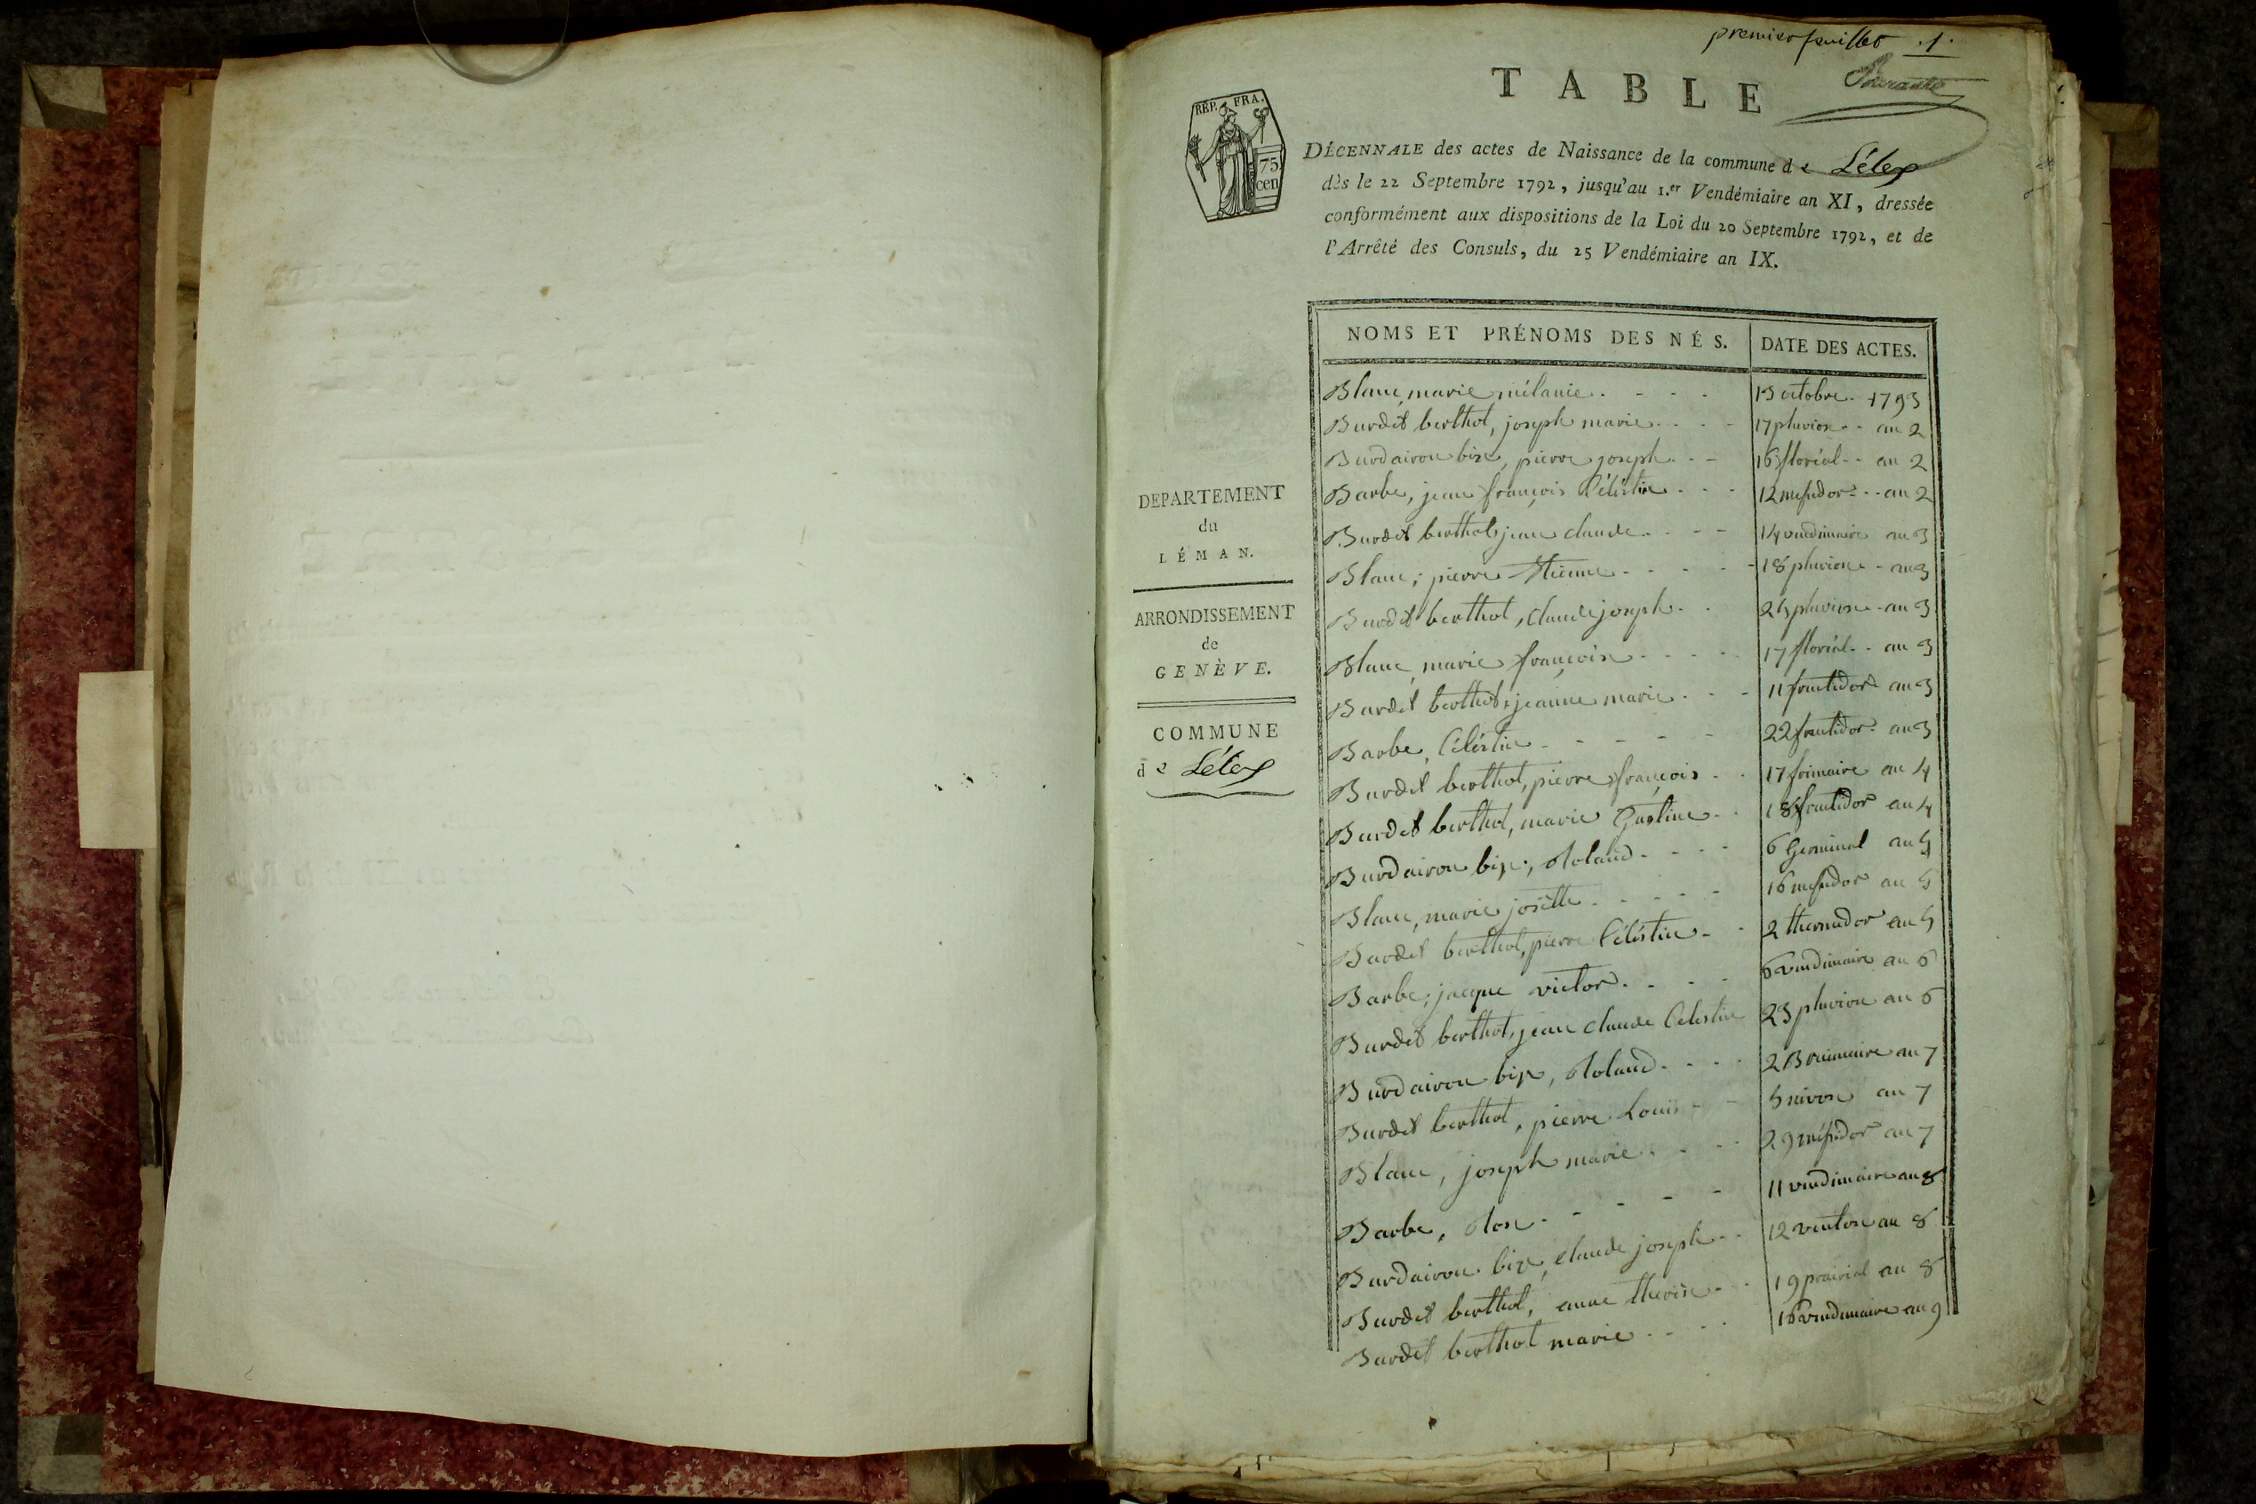 premier feuillet .1.
TABLE
RÉP. FRA.
75
cen
DÉCENNALE des actes de Naissance de la commune de Lélex
dès le 22 Septembre 1792, jusqu'au 1.er Vendémiaire an XI, dressée
conformément aux dispositions de la Loi du 20 Septembre 1792, et de
l'Arrêté des Consuls, du 25 Vendémiaire an IX.
DEPARTEMENT
du
LÉMAN.
ARRONDISSEMENT
de
GENÈVE.
COMMUNE
de Lélex
NOMS ET PRÉNOMS DES NÉS. DATE DES ACTES.
Blanc, marie mélanie 13 octobre 1793
Burdet berthot, joseph marie 17 pluviose an 2
Burdairon bize, pierre joseph 16 floréal an 2
Barbe, jean françois Céléstin 12 messidor an 2
Burdet berthot jean claude 14 vendimiaire an 3
Blanc, pierre Etienne 18 pluviose an 3
Burdet berthot, Claude joseph 25 pluviose an 3
Blanc, marie françoise 17 floréal an 3
Burdet berthot, jeanne marie 11 fructidor an 3
Barbe, Céléstin 22 fructidor an 3
Burdet berthot, pierre françois 17 frimaire an 4
Burdet berthot, marie Justine 18 fructidor an 4
Burdairon bize, Roland 6 Germinal an 5
Blanc, marie josette 16 messidor an 5
Burdet berthot, pierre Céléstin 2 thermidor an 5
Barbe, jacque victor 6 vendimiaire an 6
Burdet berthot, jean claude Celestin 23 pluviose an 6
Burdairon bize, Roland 2 Brumaire an 7
Burdet berthot, pierre Louis 5 nivose an 7
Blanc, joseph marie 29 méssidor an 7
Barbe, Rose 11 vendimiaire an 8
Burdairon bize, claude joseph 12 ventose an 8
Burdet berthot, anne therèse 19 prairial an 8
Burdet berthot marie 16 vendimiaire an 9